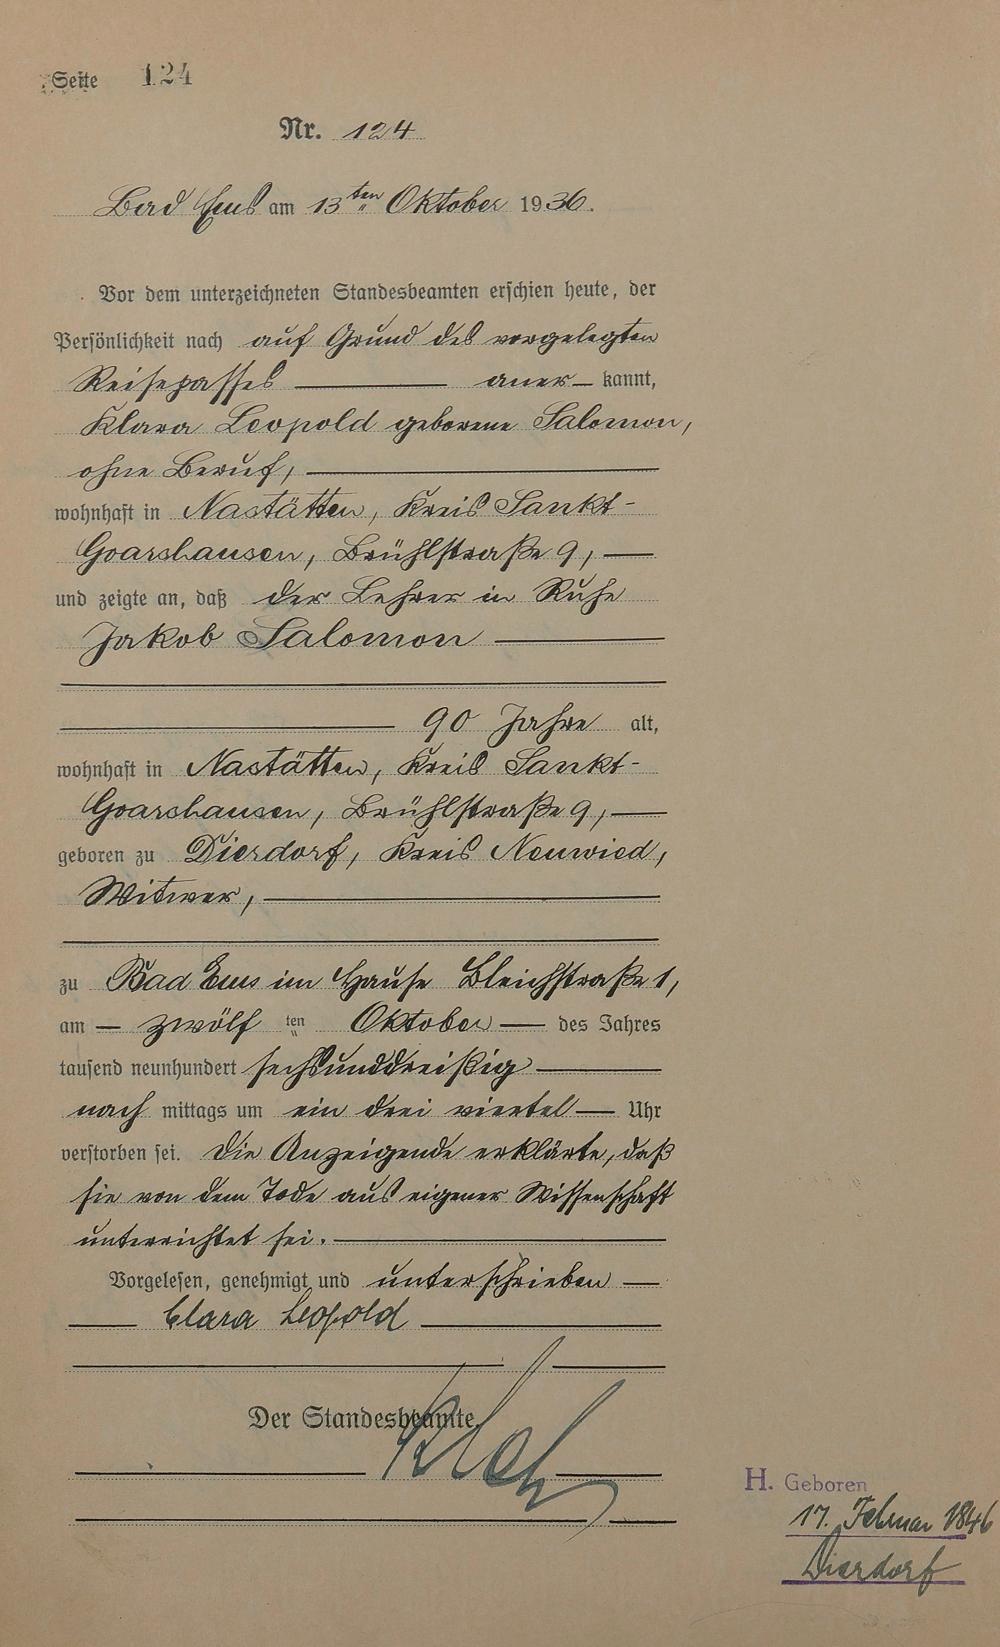 Seite 124
Nr. 124
Bad Ems am 13ten Oktober 1936.
Vor dem unterzeichneten Standesbeamten erschien heute, der
Persönlichkeit nach auf Grund des vorgelegten
Reisepasses — aner — kannt,
Klara Leopold geborene Salomon,
ohne Beruf, —
wohnhaft in Nastätten, Kreis Sankt-
Goarshausen, Brühlstraße 9, —
und zeigte an, daß der Lehrer in Ruhe
Jakob Salomon —
— 90 Jahre alt,
wohnhaft in Nastätten, Kreis Sankt-
Goarshausen, Brühlstraße 9, —
geboren zu Dierdorf, Kreis Neuwied,
Witwer, —
zu Bad Ems im Hause Bleichstraße 1,
am — zwölften Oktober — des Jahres
tausend neunhundert sechsunddreißig —
nach mittags um ein drei viertel — Uhr
verstorben sei. Die Anzeigende erklärte, daß
sie von dem Tode aus eigener Wissenschaft
unterrichtet sei. —
Vorgelesen, genehmigt und unterschrieben —
— Clara Leopold —
Der Standesbeamte.
H. Geboren
17. Februar 1846
Dierdorf